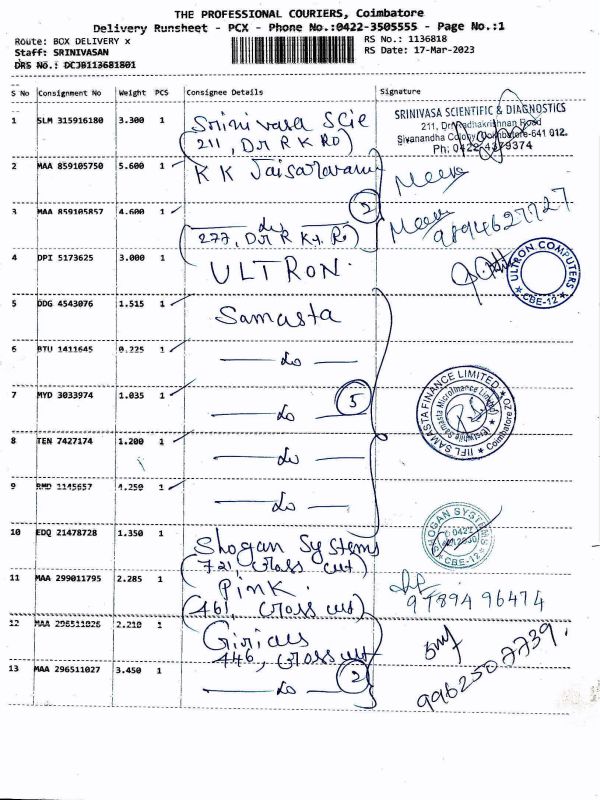 THE PROFESSIONAL COURIERS, Coimbatore
Delivery Runsheet - PCX - Phone No.:0422-3505555 - Page No.:1
Route: BOX DELIVERY x
RS No.: 1136818
Staff: SRINIVASAN
RS Date: 17-Mar-2023
DRS No.: DCJ0113681801
S No Consignment No Weight PCS Consignee Details Signature
1 SLM 315916180 3.300 1 Srinivasa Scie
(211, Dr R K RD)
SRINIVASA SCIENTIFIC & DIAGNOSTICS
211, Dr. Radhakrishnan Road
Sivanandha Colony, Coimbatore-641 012.
Ph: 0422-4379374
2 MAA 859105750 5.600 1 R K Jaisaravana
Meera
3 MAA 859105857 4.600 1 do 2
(277, Dr R K. Rd)
Meera
9894627727
4 DPI 5173625 3.000 1 ULTRON.
ULTRON COMPUTERS
CBE-12
5 ODG 4543076 1.515 1 Samasta
6 BTU 1411645 0.225 1 do
7 MYD 3033974 1.035 1 do 5
IIFL SAMASTA FINANCE LIMITED
(Erstwhile Samasta Microfinance Limited)
Coimbatore
8 TEN 7427174 1.200 1 do
9 RMD 1145657 4.250 1 do
10 EDQ 21478728 1.350 1 Shogan Systems
(721, Cross cut)
SHOGAN SYSTEMS
0422
CBE-12
11 MAA 299011795 2.285 1 Pink.
(461, Cross cut)
97894 96474
12 MAA 296511026 2.210 1 Girias
446, Cross cut
13 MAA 296511027 3.450 1 do 2
9962507739.